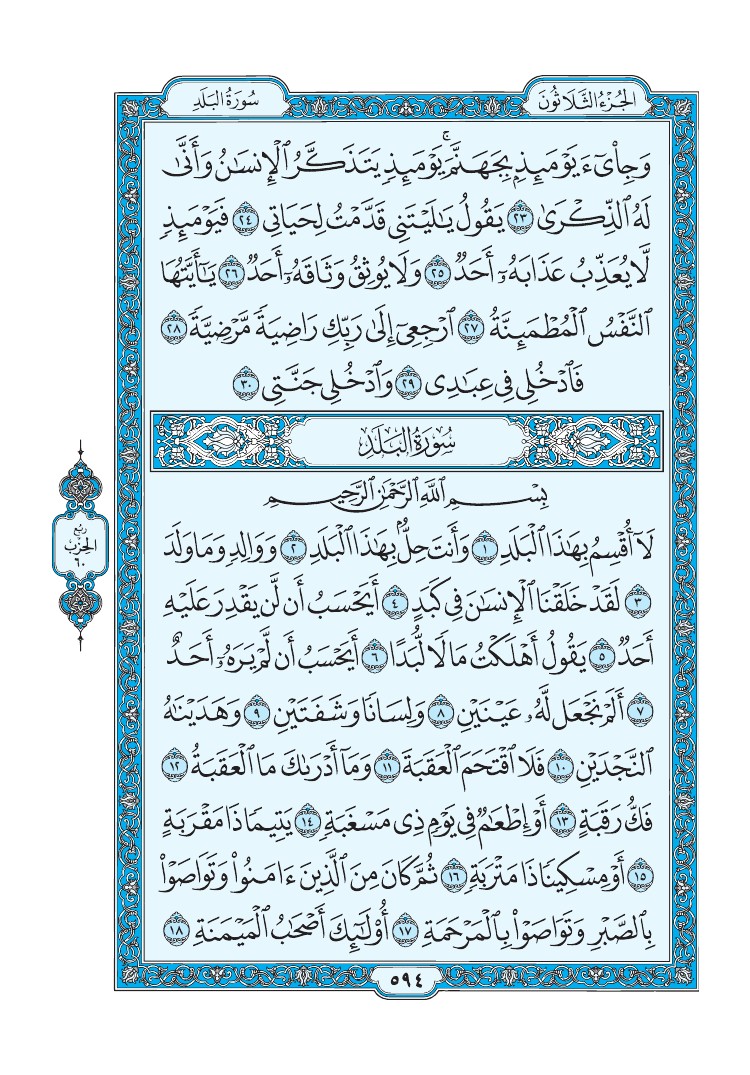 الجُزْءُ الثَّلَاثُونَ
سُورَةُ البَلَدِ
وَجِا۟ىٓءَ يَوْمَئِذِۭ بِجَهَنَّمَۚ يَوْمَئِذٍ يَتَذَكَّرُ ٱلْإِنسَٰنُ وَأَنَّىٰ
لَهُ ٱلذِّكْرَىٰ ٢٣ يَقُولُ يَٰلَيْتَنِى قَدَّمْتُ لِحَيَاتِى ٢٤ فَيَوْمَئِذٍ
لَّا يُعَذِّبُ عَذَابَهُۥٓ أَحَدٌ ٢٥ وَلَا يُوثِقُ وَثَاقَهُۥٓ أَحَدٌ ٢٦ يَٰٓأَيَّتُهَا
ٱلنَّفْسُ ٱلْمُطْمَئِنَّةُ ٢٧ ٱرْجِعِىٓ إِلَىٰ رَبِّكِ رَاضِيَةً مَّرْضِيَّةً ٢٨
فَٱدْخُلِى فِى عِبَٰدِى ٢٩ وَٱدْخُلِى جَنَّتِى ٣٠
سُورَةُ البَلَدِ
بِسْمِ ٱللَّهِ ٱلرَّحْمَٰنِ ٱلرَّحِيمِ
لَآ أُقْسِمُ بِهَٰذَا ٱلْبَلَدِ ١ وَأَنتَ حِلٌّۢ بِهَٰذَا ٱلْبَلَدِ ٢ وَوَالِدٍ وَمَا وَلَدَ
٣ لَقَدْ خَلَقْنَا ٱلْإِنسَٰنَ فِى كَبَدٍ ٤ أَيَحْسَبُ أَن لَّن يَقْدِرَ عَلَيْهِ
أَحَدٌ ٥ يَقُولُ أَهْلَكْتُ مَالًا لُّبَدًا ٦ أَيَحْسَبُ أَن لَّمْ يَرَهُۥٓ أَحَدٌ
٧ أَلَمْ نَجْعَل لَّهُۥ عَيْنَيْنِ ٨ وَلِسَانًا وَشَفَتَيْنِ ٩ وَهَدَيْنَٰهُ
ٱلنَّجْدَيْنِ ١٠ فَلَا ٱقْتَحَمَ ٱلْعَقَبَةَ ١١ وَمَآ أَدْرَىٰكَ مَا ٱلْعَقَبَةُ ١٢
فَكُّ رَقَبَةٍ ١٣ أَوْ إِطْعَٰمٌ فِى يَوْمٍ ذِى مَسْغَبَةٍ ١٤ يَتِيمًا ذَا مَقْرَبَةٍ
١٥ أَوْ مِسْكِينًا ذَا مَتْرَبَةٍ ١٦ ثُمَّ كَانَ مِنَ ٱلَّذِينَ ءَامَنُوا۟ وَتَوَاصَوْا۟
بِٱلصَّبْرِ وَتَوَاصَوْا۟ بِٱلْمَرْحَمَةِ ١٧ أُو۟لَٰٓئِكَ أَصْحَٰبُ ٱلْمَيْمَنَةِ ١٨
رُبْع
الحِزْب
٦٠
٥٩٤